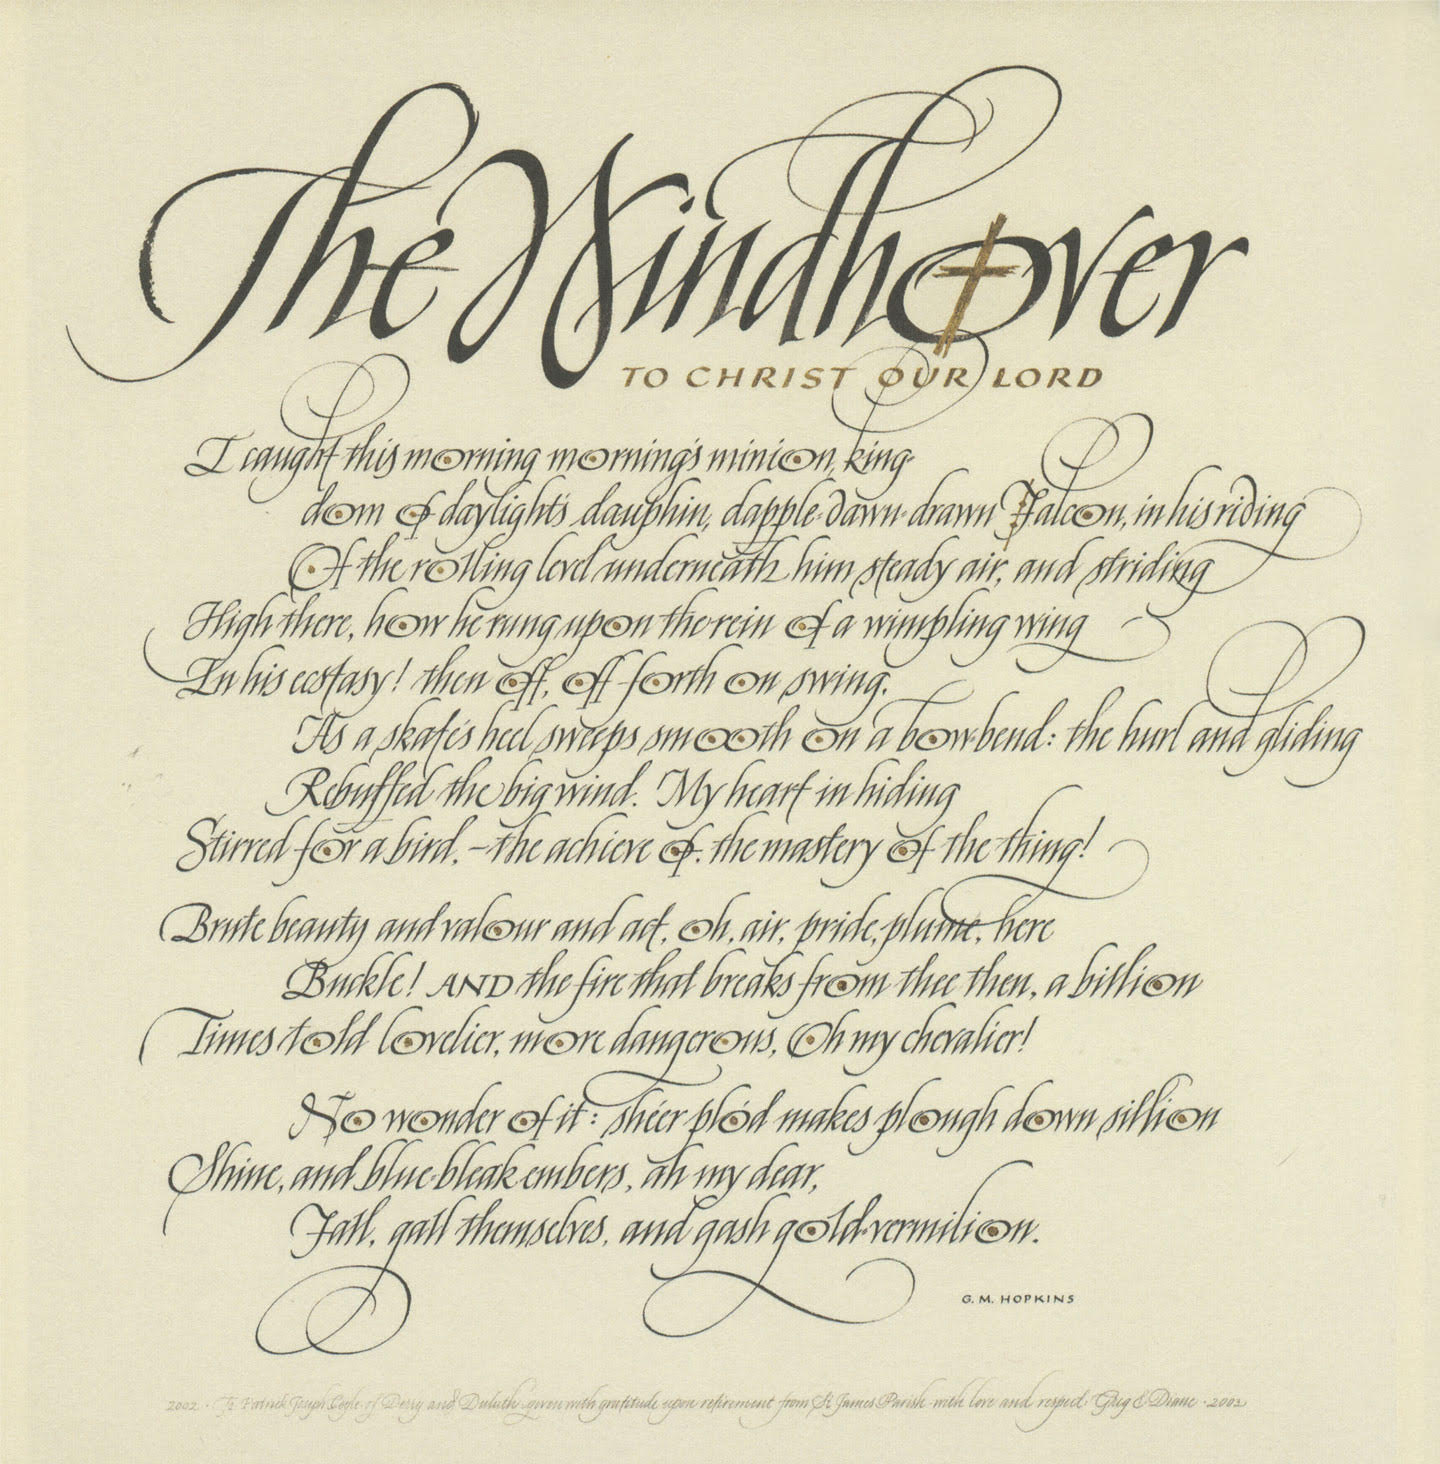 The Windhover
TO CHRIST OUR LORD
I caught this morning morning's minion, king-
dom of daylight's dauphin, dapple-dawn-drawn Falcon, in his riding
Of the rolling level underneath him steady air, and striding
High there, how he rung upon the rein of a wimpling wing
In his ecstasy! then off, off forth on swing,
As a skate's heel sweeps smooth on a bow-bend: the hurl and gliding
Rebuffed the big wind. My heart in hiding
Stirred for a bird, – the achieve of, the mastery of the thing!
Brute beauty and valour and act, oh, air, pride, plume, here
Buckle! AND the fire that breaks from thee then, a billion
Times told lovelier, more dangerous, Oh my chevalier!
No wonder of it: shéer plód makes plough down sillion
Shine, and blue-bleak embers, ah my dear,
Fall, gall themselves, and gash gold-vermilion.
G. M. HOPKINS
2002 · To Patrick Joseph of Derry and Duluth given with gratitude upon retirement from St James Parish with love and respect Greg & Diane · 2002